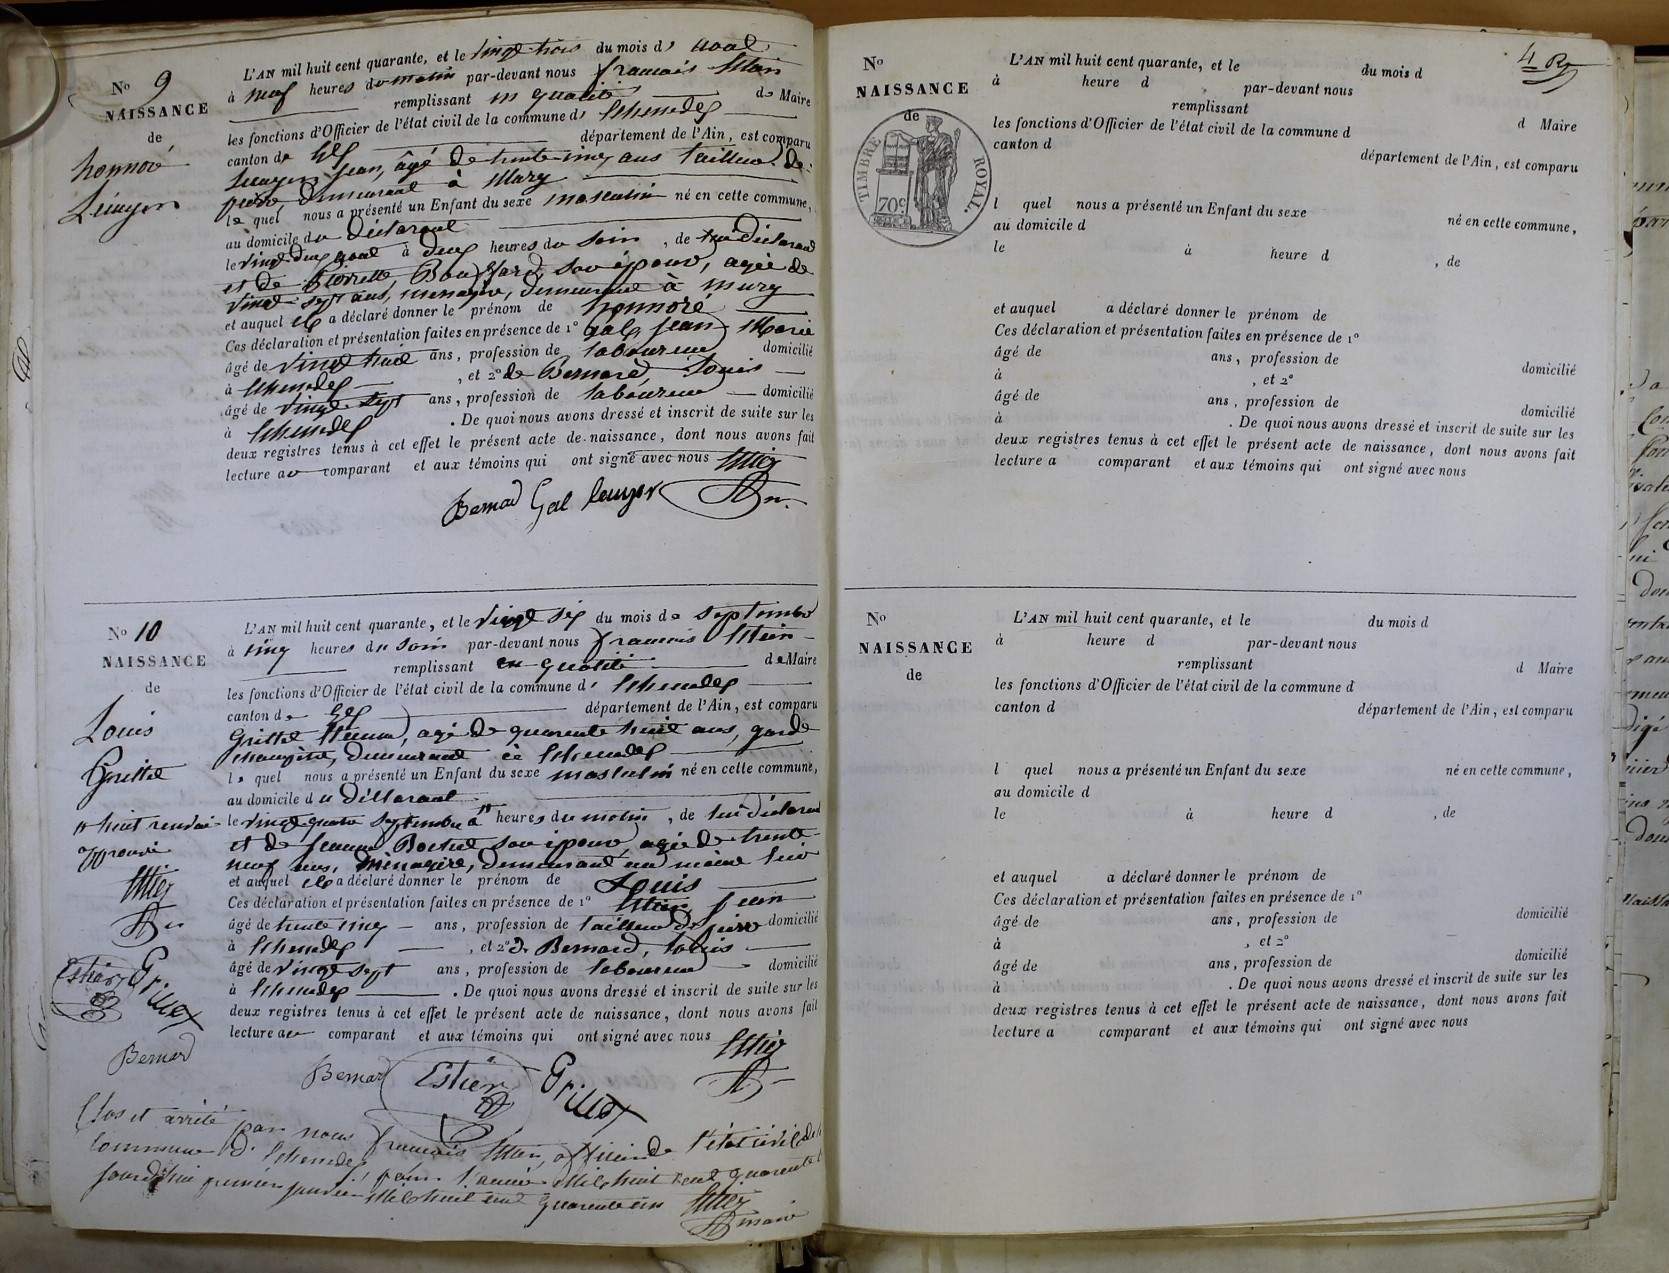 No 9
NAISSANCE
de
honnoré
Lévayer
L'AN mil huit cent quarante, et le vingt trois du mois d' aoat
à neuf heures du matin par-devant nous francois
remplissant en qualité de Maire
les fonctions d'Officier de l'état civil de la commune d'
canton de Gex département de l'Ain, est comparu
Jean, âgé de trente cinq ans tailleur de
pierre demeurant à Mury
le quel nous a présenté un Enfant du sexe masculin né en cette commune,
au domicile du déclarant
le vingt deux aoat à deux heures du soir, de
et de son épouse, agée de
vingt-sept ans, menagère, demeurant à mury
et auquel il a déclaré donner le prénom de honnoré
Ces déclaration et présentation faites en présence de 1° Jean Marie
âgé de vingt huit ans, profession de laboureur domicilié
à , et 2° de Bernard Louis
âgé de vingt-sept ans, profession de laboureur domicilié
à . De quoi nous avons dressé et inscrit de suite sur les
deux registres tenus à cet effet le présent acte de naissance, dont nous avons fait
lecture au comparant et aux témoins qui ont signé avec nous
Bernard Gal
No 10
NAISSANCE
de
Louis
Grillet
L'AN mil huit cent quarante, et le vingt six du mois de septembre
à cinq heures du soir par-devant nous francois
remplissant en qualité de Maire
les fonctions d'Officier de l'état civil de la commune d'
canton de Gex département de l'Ain, est comparu
agé de quarante huit ans, garde
champêtre, demeurant à
le quel nous a présenté un Enfant du sexe masculin né en cette commune,
au domicile du déclarant
le vingt quatre septembre à heures du matin, de lui déclarant
et de Jeanne son épouse, agée de trente
neuf ans, ménagère, demeurant au même lieu
et auquel il a déclaré donner le prénom de Louis
Ces déclaration et présentation faites en présence de 1° Jean
âgé de trente cinq ans, profession de tailleur de pierre domicilié
à , et 2° de Bernard, Louis
âgé de vingt sept ans, profession de laboureur domicilié
à . De quoi nous avons dressé et inscrit de suite sur les
deux registres tenus à cet effet le présent acte de naissance, dont nous avons fait
lecture au comparant et aux témoins qui ont signé avec nous
huit
approuvé
Bernard
Bernard Estier
Clos et arrêté par nous francois officier de l'état civil de la
commune d' pour l'année mil huit cent quarante
jourd'hui premier janvier mil huit cent quarante un
maire
4
No
NAISSANCE
de
TIMBRE ROYAL.
70c
L'AN mil huit cent quarante, et le du mois d
à heure d par-devant nous
remplissant d Maire
les fonctions d'Officier de l'état civil de la commune d
canton d département de l'Ain, est comparu
l quel nous a présenté un Enfant du sexe né en cette commune,
au domicile d
le à heure d , de
et auquel a déclaré donner le prénom de
Ces déclaration et présentation faites en présence de 1°
âgé de ans, profession de domicilié
à , et 2°
âgé de ans, profession de domicilié
à . De quoi nous avons dressé et inscrit de suite sur les
deux registres tenus à cet effet le présent acte de naissance, dont nous avons fait
lecture a comparant et aux témoins qui ont signé avec nous
No
NAISSANCE
de
L'AN mil huit cent quarante, et le du mois d
à heure d par-devant nous
remplissant d Maire
les fonctions d'Officier de l'état civil de la commune d
canton d département de l'Ain, est comparu
l quel nous a présenté un Enfant du sexe né en cette commune,
au domicile d
le à heure d , de
et auquel a déclaré donner le prénom de
Ces déclaration et présentation faites en présence de 1°
âgé de ans, profession de domicilié
à , et 2°
âgé de ans, profession de domicilié
à . De quoi nous avons dressé et inscrit de suite sur les
deux registres tenus à cet effet le présent acte de naissance, dont nous avons fait
lecture a comparant et aux témoins qui ont signé avec nous